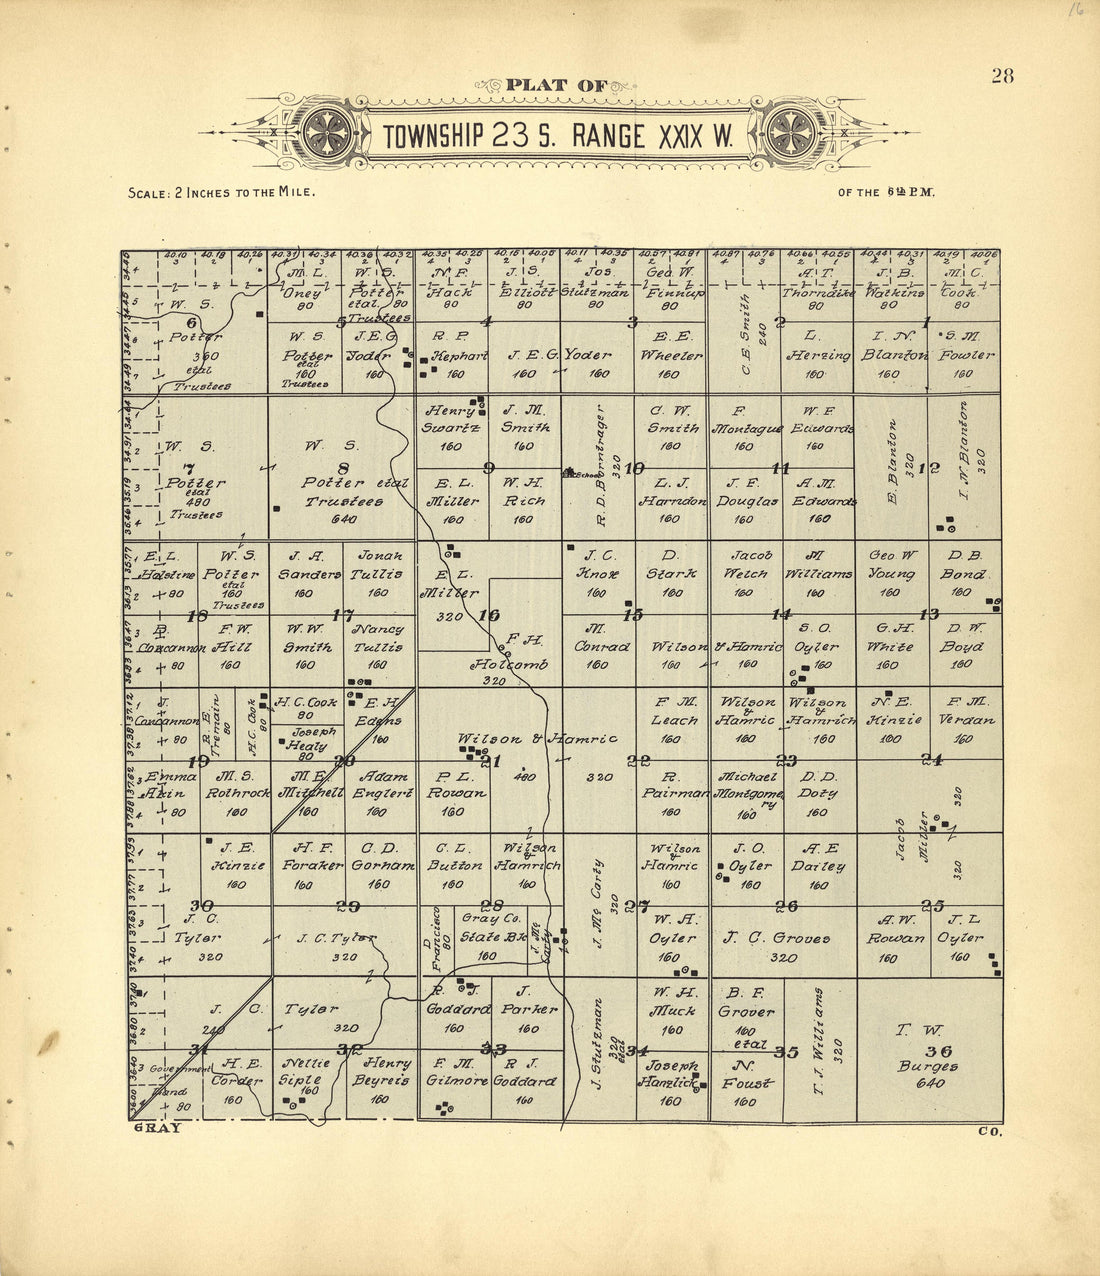 16
28
PLAT OF
TOWNSHIP 23 S. RANGE XXIX W.
SCALE: 2 INCHES TO THE MILE.
OF THE 6th P.M.
40.10 40.18 40.26 40.31 40.34 40.36 40.32 40.35 40.25 40.15 40.05 40.11 40.35 40.57 40.81 40.87 40.76 40.66 40.55 40.44 40.31 40.19 40.06
W. S.
6
Potter
360
etal
Trustees
M. L.
Oney
80
W. S.
Potter
etal. 80
Trustees
5
W. S.
Potter
etal
160
Trustees
J. E. G
Yoder
160
N. F.
Hack
80
J. S.
Elliott
80
4
R. P.
Kephart
160
J. E. G. Yoder
160
160
Jos.
Stutzman
80
Geo. W.
Finnup
80
3
E. E.
Wheeler
160
C E Smith
240
A. T.
Thorndike
80
2
L.
Herzing
160
J. B.
Watkins
80
M. C.
Cook
80
1
I. N.
Blanton
160
S. M.
Fowler
160
W. S.
7
Potter
etal
480
Trustees
W. S.
8
Potter etal
Trustees
640
Henry
Swartz
160
J. M.
Smith
160
9
E. L.
Miller
160
W. H.
Rich
160
R. D. Borntrager
320
School
C. W.
Smith
160
10
L. J.
Harndon
160
F.
Montague
160
W. F
Edwards
160
11
J. F.
Douglas
160
A. M.
Edwards
160
E. Blanton
320
12
I. N. Blanton
320
E. L.
Holstine
80
W. S.
Potter
etal
160
Trustees
18
B.
Concannon
80
F. W.
Hill
160
J. A.
Sanders
160
Jonah
Tullis
160
17
W. W.
Smith
160
Nancy
Tullis
160
E. L.
Miller
320
16
F. H.
Holcomb
320
J. C.
Knox
160
D.
Stark
160
15
M.
Conrad
160
Wilson & Hamric
160
160
Jacob
Welch
160
M
Williams
160
14
S. O.
Oyler
160
Geo W
Young
160
D. B.
Bond
160
13
G. H.
White
160
D. W.
Boyd
160
J.
Concannon
80
R. E.
Tremain
80
H. C. Cook
80
19
Emma
Akin
80
M. S.
Rothrock
160
H. C. Cook
80
Joseph
Healy
80
E. H.
Edens
160
20
M E.
Mitchell
160
Adam
Englert
160
Wilson & Hamric
21
480
320
P. L.
Rowan
160
F. M.
Leach
160
22
R.
Pairman
160
Wilson
&
Hamric
160
Wilson
&
Hamrich
160
23
Michael
Montgome
ry
160
D. D.
Doty
160
N. E.
Kinzie
160
F. M.
Verdan
160
24
Jacob
Miller
320
320
J. E.
Kinzie
160
30
J. C.
Tyler
320
H. F.
Foraker
160
C. D.
Gorham
160
29
J. C. Tyler
320
C. L.
Button
160
Wilson
&
Hamrich
160
28
D
Francisco
80
Gray Co.
State Bk
160
J. Mc
Carty
J. Mc Carty
320
Wilson
&
Hamric
160
27
W. A.
Oyler
160
J. O.
Oyler
160
A. E
Dailey
160
26
J. C. Groves
320
25
A. W.
Rowan
160
J. L
Oyler
160
J. C.
240
31
Government
Land
80
H. E.
Corder
160
Tyler
320
32
Nellie
Siple
160
Henry
Beyreis
160
R. J.
Goddard
160
J.
Parker
160
33
F. M.
Gilmore
160
R J.
Goddard
160
J. Stutzman
320
etal
W. H.
Muck
160
34
Joseph
Hanzlick
160
B. F.
Grover
160
etal
35
N.
Foust
160
T. J. Williams
320
T. W.
36
Burges
640
GRAY
CO.